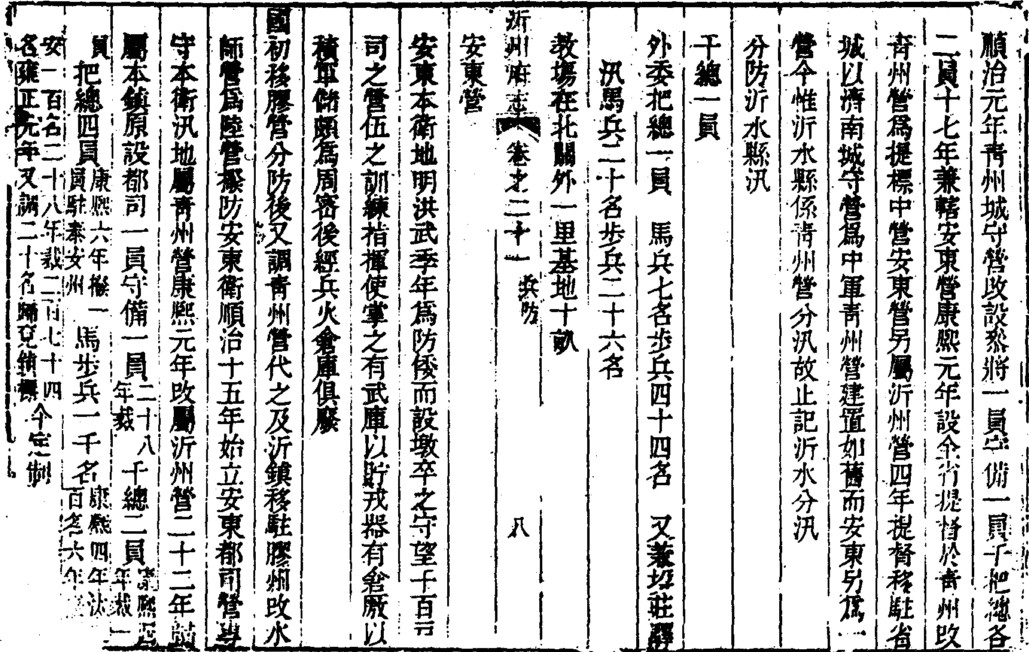 順治元年青州城守營改設叅將一員守備一員千把總各
二員十七年兼轄安東營康熙元年設全省提督於青州改
青州營爲提標中營安東營另屬沂州營四年提督移駐省
城以濟南城守營爲中軍青州營建置如舊而安東另爲一
營今惟沂水縣係青州營分汛故止記沂水分汛
分防沂水縣汛
千總一員
外委把總一員 馬兵七名步兵四十四名 又兼垜莊驛
汛馬兵二十名步兵二十六名
教塲在北關外一里基地十畝
沂州府志 卷之二十一 兵防 八
安東營
安東本衛地明洪武季年爲防倭而設墩卒之守望千百户
司之營伍之訓練指揮使掌之有武庫以貯戎器有倉厫以
積軍儲頗爲周密後經兵火倉庫俱廢
國初移膠營分防後又調青州營代之及沂鎮移駐膠州改水
師營爲陸營撥防安東衛順治十五年始立安東都司營專
守本衛汛地屬青州營康熙元年改屬沂州營二十二年
屬本鎮原設都司一員守備一員二十八年裁千總二員康熙年裁一
員把總四員康熙六年撥一員駐泰安州馬步兵一千名康熙四年汰百名六年
安一百名二十八年裁二百七十四名雍正元年又調二十名歸兗鎮標今定制